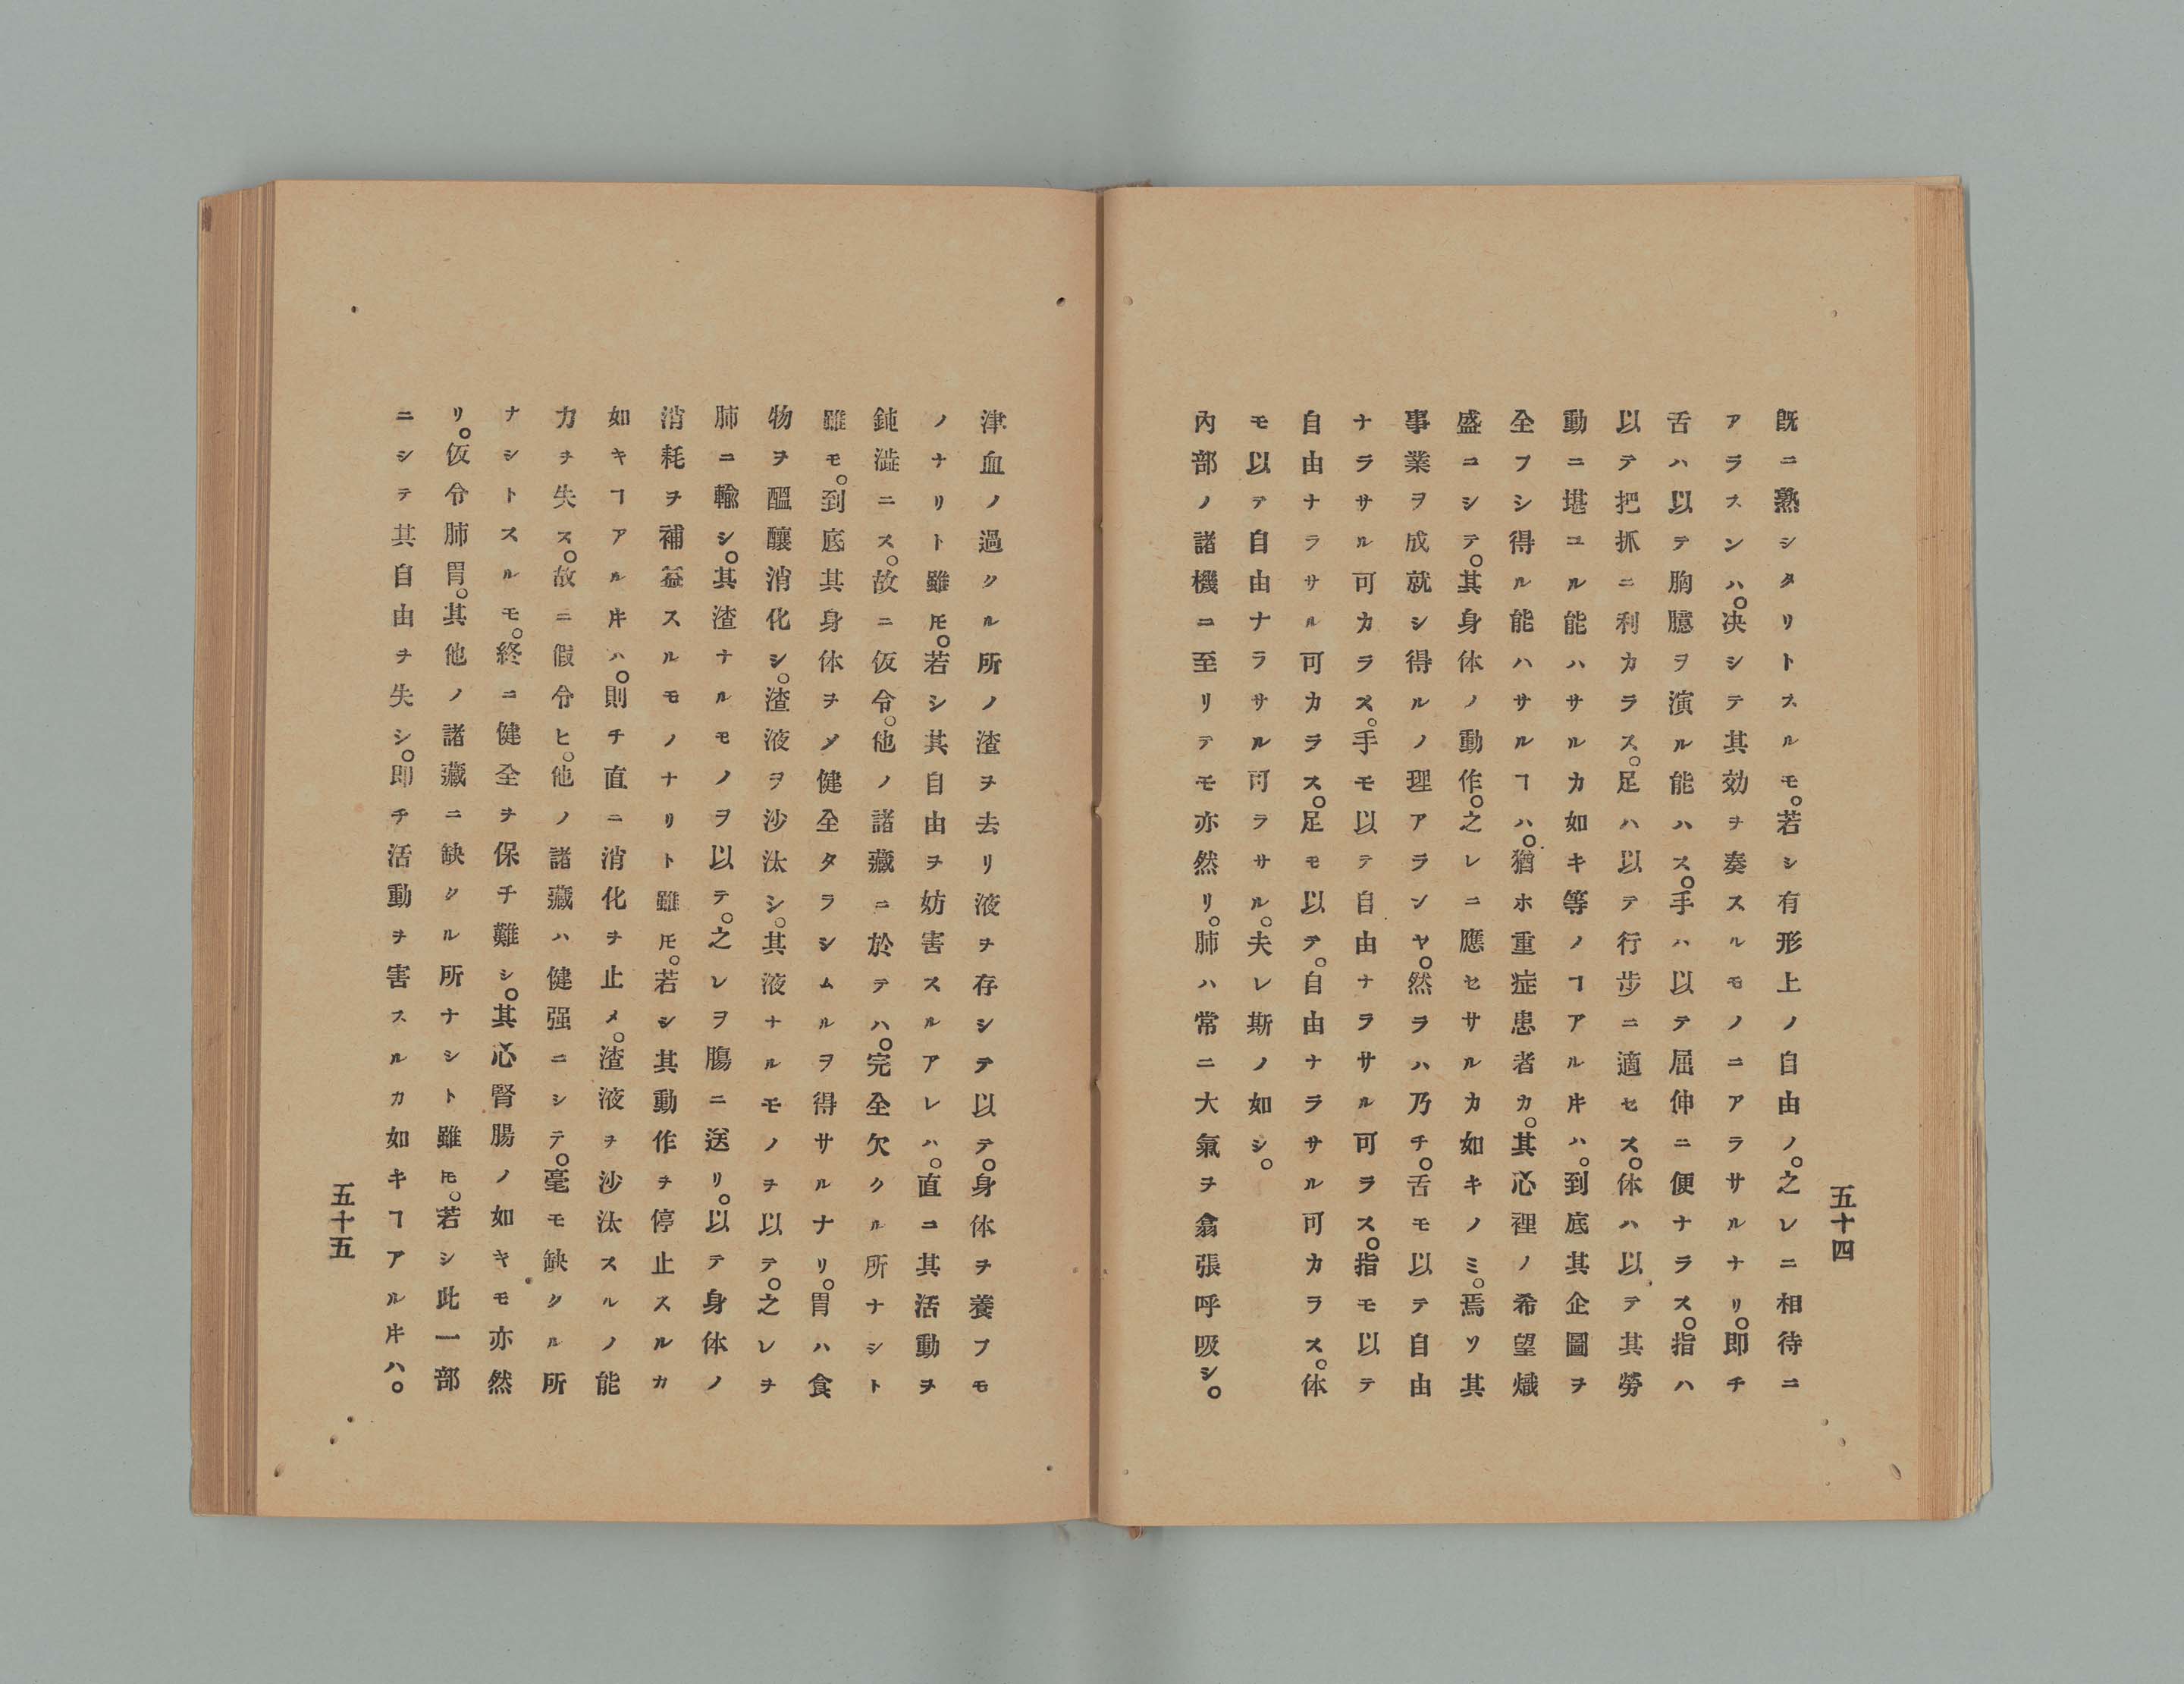 五十四
既ニ熟シタリトスルモ。若シ有形上ノ自由ノ。之レニ相待ニ
アラスンハ。决シテ其効ヲ奏スルモノニアラサルナリ。即チ
舌ハ以テ胸臆ヲ演ル能ハス。手ハ以テ屈伸ニ便ナラス。指ハ
以テ把抓ニ利カラス。足ハ以テ行歩ニ適セス。体ハ以テ其勞
動ニ堪ユル能ハサルカ如キ等ノヿアルキハ。到底其企圖ヲ
全フシ得ル能ハサルヿハ。猶ホ重症患者カ。其心裡ノ希望熾
盛ニシテ。其身体ノ動作。之レニ應セサルカ如キノミ。焉ソ其
事業ヲ成就シ得ルノ理アランヤ。然ラハ乃チ。舌モ以テ自由
ナラサル可カラス。手モ以テ自由ナラサル可ラス。指モ以テ
自由ナラサル可カラス。足モ以テ。自由ナラサル可カラス。体
モ以テ自由ナラサル可ラサル。夫レ斯ノ如シ。
內部ノ諸機ニ至リテモ亦然リ。肺ハ常ニ大氣ヲ翕張呼吸シ。
津血ノ過クル所ノ渣ヲ去リ液ヲ存シテ以テ。身体ヲ養フモ
ノナリト雖𪜈。若シ其自由ヲ妨害スルアレハ。直ニ其活動ヲ
鈍澁ニス。故ニ仮令。他ノ諸藏ニ於テハ。完全欠クル所ナシト
雖モ。到底其身体ヲメ健全タラシムルヲ得サルナリ。胃ハ食
物ヲ醞釀消化シ。渣液ヲ沙汰シ。其液ナルモノヲ以テ。之レヲ
肺ニ輸シ。其渣ナルモノヲ以テ。之レヲ膓ニ送リ。以テ身体ノ
消耗ヲ補益スルモノナリト雖𪜈。若シ其動作ヲ停止スルカ
如キヿアルキハ。則チ直ニ消化ヲ止メ。渣液ヲ沙汰スルノ能
力ヲ失ス。故ニ假令ヒ。他ノ諸藏ハ健强ニシテ。毫モ缺クル所
ナシトスルモ。終ニ健全ヲ保チ難シ。其心腎腸ノ如キモ亦然
リ。仮令肺胃。其他ノ諸藏ニ缺クル所ナシト雖𪜈。若シ此一部
ニシテ其自由ヲ失シ。即チ活動ヲ害スルカ如キヿアルキハ。
五十五